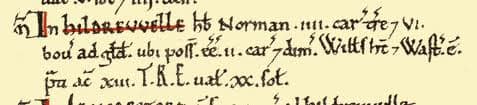 ꝳ In hildrewelle hb̄ Norman .iiii. car᷑ t̄re ⁊ vi.
bou᷑ ad gld̄. ubi poss̄. ee̅. ii. car᷑ ⁊ dim᷑. Witts ht̄ ⁊ Wast̄. ē.
p̄ta ac̄ xiii. T. R. E. ual᷑. xx. sol̄.